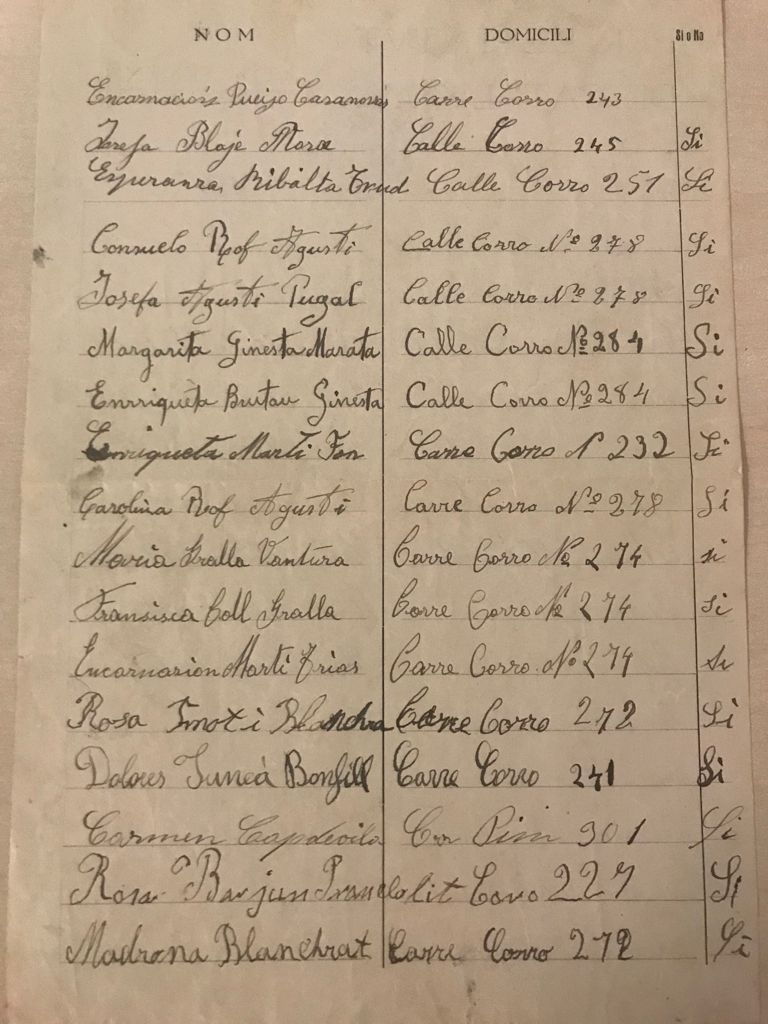 NOM DOMICILI Si o No
Encarnación Pueijo Casanovas Carre Corro 243
Josefa Blajé Mora Calle Corro 245 Si
Esperanza Ribalta Calle Corro 251 Si
Consuelo Rof Agusti Calle Corro Nº 278 Si
Josefa Agusti Pugal Calle Corro Nº 278 Si
Margarita Ginesta Marata Calle Corro Nº 284 Si
Enrriqueta Brutau Ginesta Calle Corro Nº 284 Si
Enriqueta Marti Fon Carre Corro N 232 Si
Carolina Rof Agusti Carre Corro Nº 278 Si
Maria Gralla Vantura Carre Corro Nº 274 si
Fransisca Coll Gralla Corre Corro Nº 274 si
Encarnarion Marti Frias Carre Corro Nº 274 si
Rosa Imoti Blanchra Carre Corro 272 Si
Dolores Juncà Bonfill Carre Corro 241 Si
Carmen Capdevila Crr Pim 301 Si
Rosa Barjun 227 Si
Madrona Blanchrat Carre Corro 272 Si